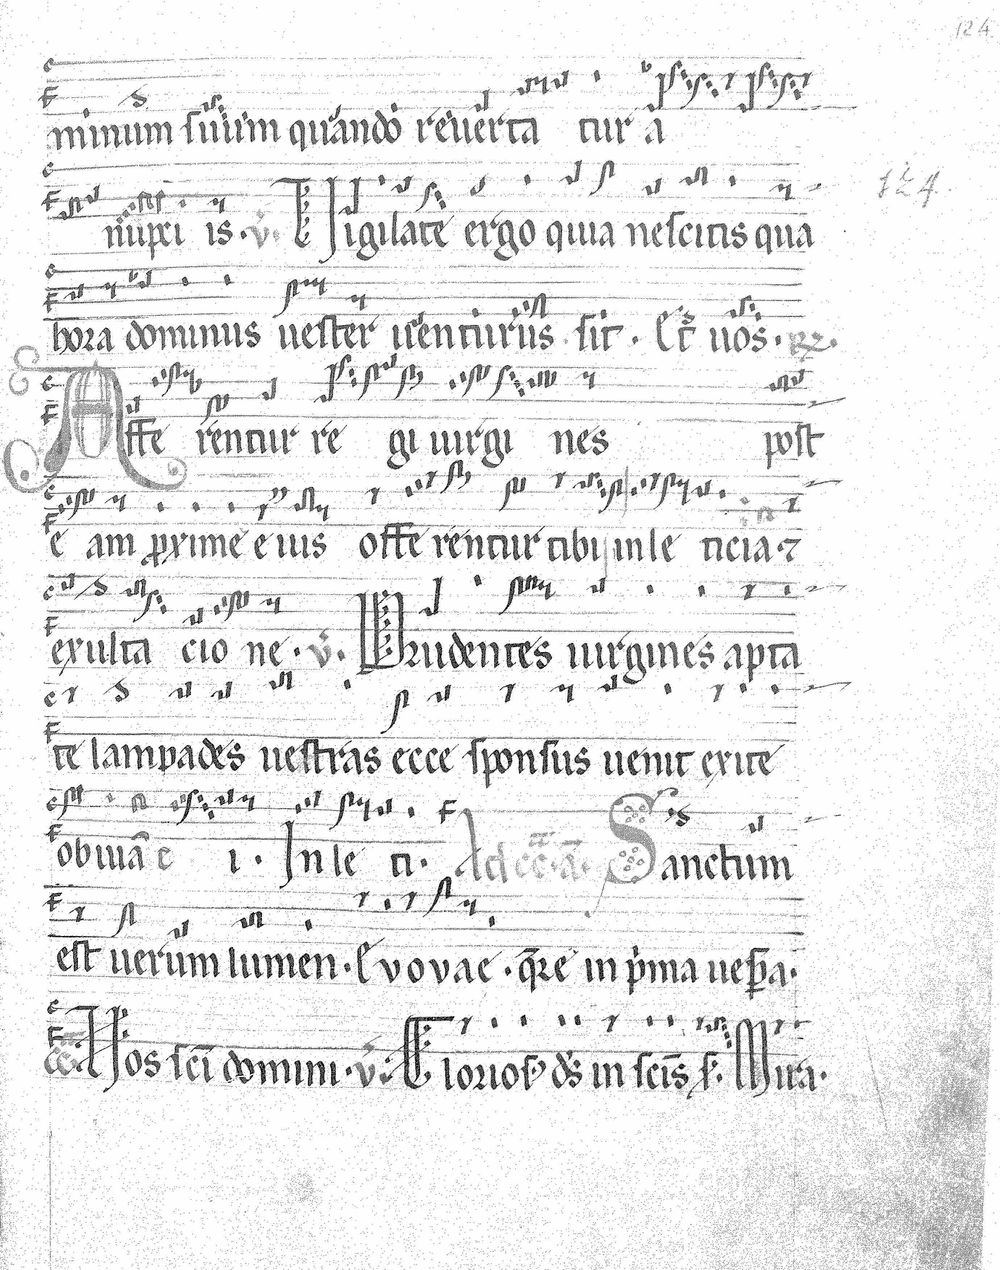 124
minum suum quando reverta tur a
124.
nupci is · v̄. Vigilate ergo quia nescitis qua
hora dominus uester uenturus sit · Et uos · R̸.
Affe rentur re gi uirgi nes post
e am ꝓxime eius offe rentur tibi in le ticia · ⁊
exulta cio ne · v̄. Prudentes uirgines apta
te lampades uestras ecce sponsus uenit exite
obuiā e i · In le ti · Ad cc̄.ā. Sanctum
est uerum lumen · Evovae · q̄re in p̄ma uesꝑa ·
cc. Hos sc̄i domini · v̄. Gloriosꝰ ds̄ in sc̄is s. Mira ·